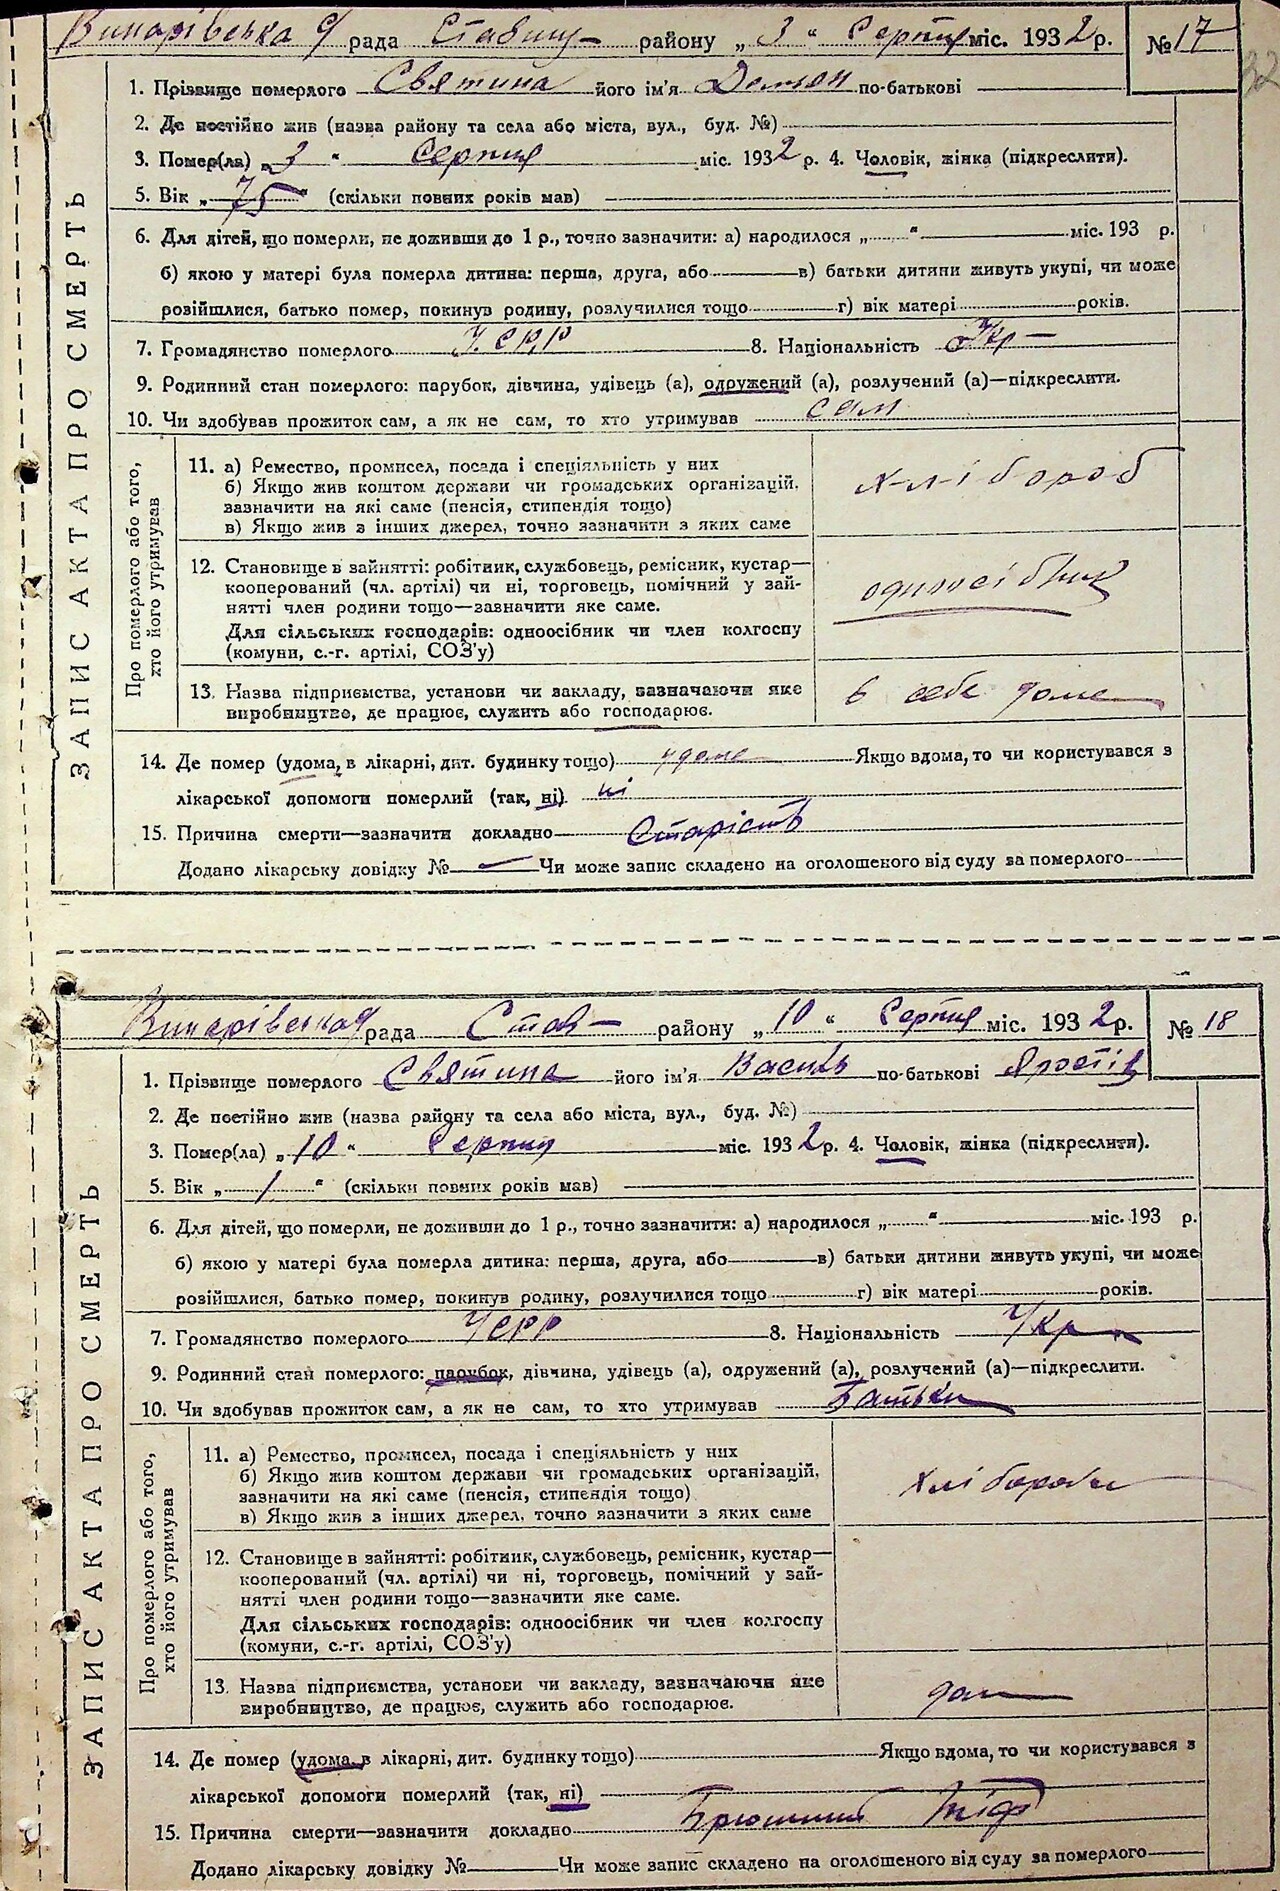 Винарівська с/ рада Ставищ— району „ 3 “ Серпня міс. 1932 р. №17
32
ЗАПИС АКТА ПРО СМЕРТЬ
1. Прізвище померлого Святина його ім'я Демян по-батькові
2. Де постійно жив (назва району та села або міста, вул., буд. №)
3. Помер(ла) „ 3 “ Серпня міс. 1932 р. 4. Чоловік, жінка (підкреслити).
5. Вік „ 75 “ (скільки повних років мав)
6. Для дітей, що померли, не доживши до 1 р., точно зазначити: а) народилося „ “ міс. 193 р.
б) якою у матері була померла дитина: перша, друга, або в) батьки дитини живуть укупі, чи може
розійшлися, батько помер, покинув родину, розлучилися тощо г) вік матері років.
7. Громадянство померлого У.СРР 8. Національність Укр—
9. Родинний стан померлого: парубок, дівчина, удівець (а), одружений (а), розлучений (а)—підкреслити.
10. Чи здобував прожиток сам, а як не сам, то хто утримував сам
Про померлого або того,
хто його утримував
11. а) Ремество, промисел, посада і спеціяльність у них
б) Якщо жив коштом держави чи громадських організацій,
зазначити на які саме (пенсія, стипендія тощо)
в) Якщо жив з інших джерел, точно зазначити з яких саме
хлібороб
12. Становище в зайнятті: робітник, службовець, ремісник, кустар—
кооперований (чл. артілі) чи ні, торговець, помічний у зай-
нятті член родини тощо—зазначити яке саме.
Для сільських господарів: одноосібник чи член колгоспу
(комуни, с.-г. артілі, СОЗ'у)
одноосібник
13. Назва підприємства, установи чи закладу, зазначаючи яке
виробництво, де працює, служить або господарює.
в себе дома
14. Де помер (удома, в лікарні, дит. будинку тощо) удома Якщо вдома, то чи користувався з
лікарської допомоги померлий (так, ні) ні
15. Причина смерти—зазначити докладно Старість
Додано лікарську довідку № — Чи може запис складено на оголошеного від суду за померлого
Винарівська с/ рада Став— району „ 10 “ Серпня міс. 1932 р. № 18
ЗАПИС АКТА ПРО СМЕРТЬ
1. Прізвище померлого Святина його ім'я Василь по-батькові
2. Де постійно жив (назва району та села або міста, вул., буд. №)
3. Помер(ла) „ 10 “ Серпня міс. 1932 р. 4. Чоловік, жінка (підкреслити).
5. Вік „ 1 “ (скільки повних років мав)
6. Для дітей, що померли, не доживши до 1 р., точно зазначити: а) народилося „ “ міс. 193 р.
б) якою у матері була померла дитина: перша, друга, або в) батьки дитини живуть укупі, чи може
розійшлися, батько помер, покинув родину, розлучилися тощо г) вік матері років.
7. Громадянство померлого УСРР 8. Національність Укр—
9. Родинний стан померлого: парубок, дівчина, удівець (а), одружений (а), розлучений (а)—підкреслити.
10. Чи здобував прожиток сам, а як не сам, то хто утримував Батьки
Про померлого або того,
хто його утримував
11. а) Ремество, промисел, посада і спеціяльність у них
б) Якщо жив коштом держави чи громадських організацій,
зазначити на які саме (пенсія, стипендія тощо)
в) Якщо жив з інших джерел, точно зазначити з яких саме
хлібороби
12. Становище в зайнятті: робітник, службовець, ремісник, кустар—
кооперований (чл. артілі) чи ні, торговець, помічний у зай-
нятті член родини тощо—зазначити яке саме.
Для сільських господарів: одноосібник чи член колгоспу
(комуни, с.-г. артілі, СОЗ'у)
13. Назва підприємства, установи чи закладу, зазначаючи яке
виробництво, де працює, служить або господарює.
дом—
14. Де помер (удома, в лікарні, дит. будинку тощо) Якщо вдома, то чи користувався з
лікарської допомоги померлий (так, ні)
15. Причина смерти—зазначити докладно Брюшний тіф
Додано лікарську довідку № Чи може запис складено на оголошеного від суду за померлого